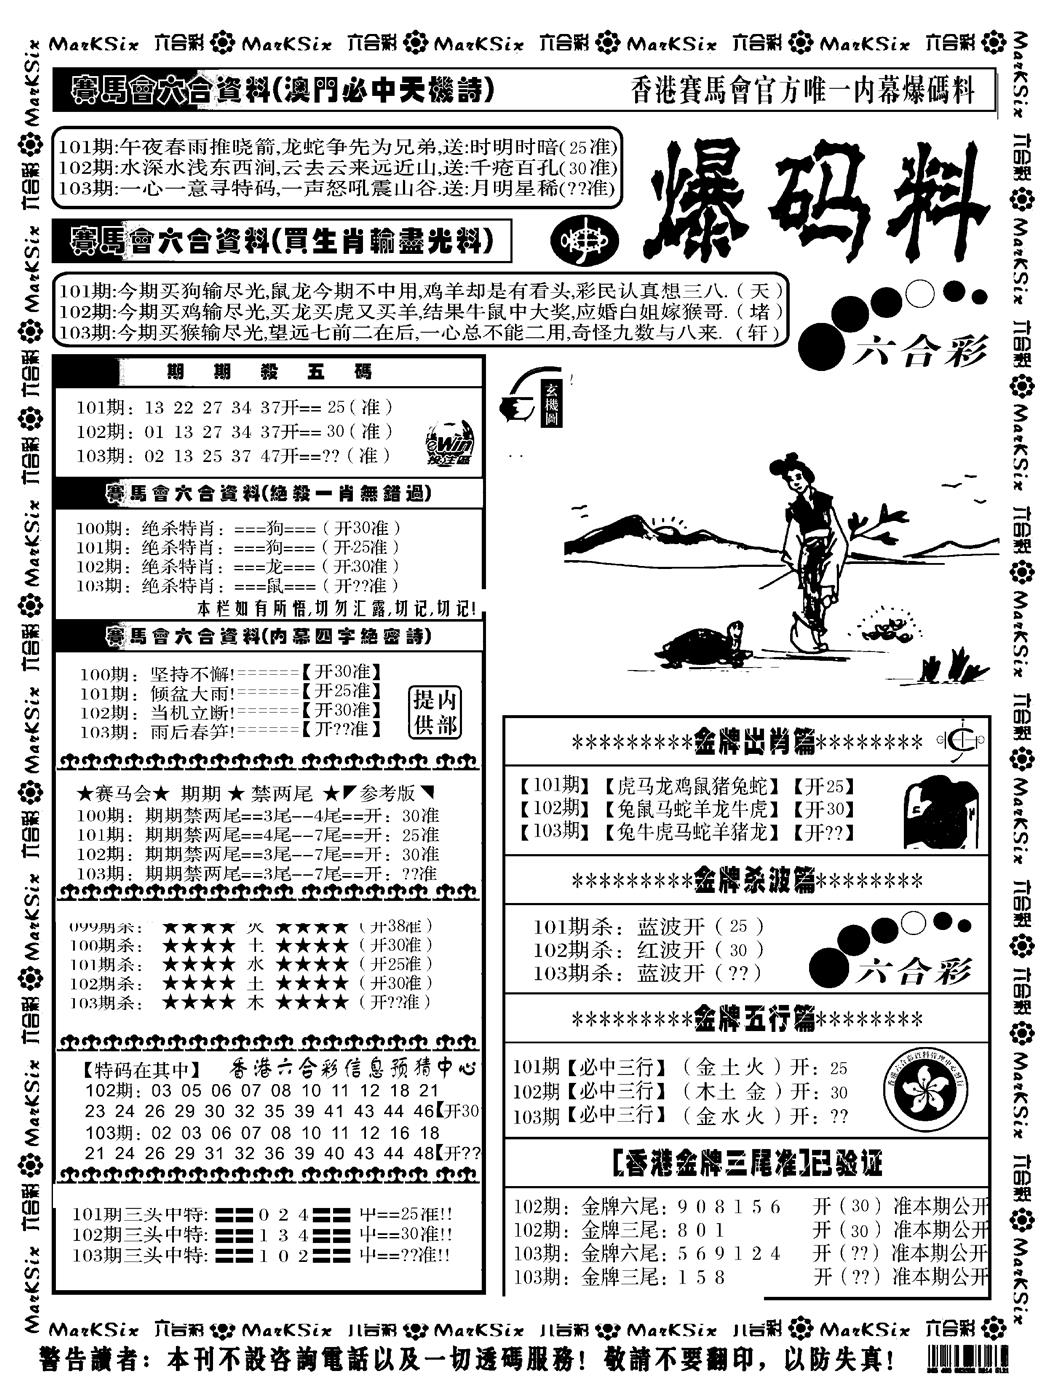 MarKSix 六合彩 MarKSix 六合彩 MarKSix 六合彩 MarKSix 六合彩 MarKSix 六合彩
賽馬會六合資料(澳門必中天機詩)
香港賽馬會官方唯一内幕爆碼料
101期:午夜春雨推晓箭,龙蛇争先为兄弟,送:时明时暗(25准)
102期:水深水浅东西涧,云去云来远近山,送:千疮百孔(30准)
103期:一心一意寻特码,一声怒吼震山谷.送:月明星稀(??准)
爆码料
賽馬會六合資料(買生肖輸盡光料)
101期:今期买狗输尽光,鼠龙今期不中用,鸡羊却是有看头,彩民认真想三八.(天)
102期:今期买鸡输尽光,买龙买虎又买羊,结果牛鼠中大奖,应婚白姐嫁猴哥.(堵)
103期:今期买猴输尽光,望远七前二在后,一心总不能二用,奇怪九数与八来.(轩)
六合彩
期期殺五碼
101期: 13 22 27 34 37开== 25(准)
102期: 01 13 27 34 37开== 30(准)
103期: 02 13 25 37 47开==??(准)
eWin
投注區
玄機圖
賽馬會六合資料(絕殺一肖無錯過)
100期: 绝杀特肖: ===狗===(开30准)
101期: 绝杀特肖: ===狗===(开25准)
102期: 绝杀特肖: ===龙===(开30准)
103期: 绝杀特肖: ===鼠===(开??准)
本栏如有所悟,切勿汇露,切记,切记!
賽馬會六合資料(内幕四字絕密詩)
100期: 坚持不懈!======【开30准】
101期: 倾盆大雨!======【开25准】
102期: 当机立断!======【开30准】
103期: 雨后春笋!======【开??准】
内部提供
★赛马会★ 期期 ★ 禁两尾 ★◤参考版◥
100期: 期期禁两尾==3尾--4尾==开: 30准
101期: 期期禁两尾==4尾--7尾==开: 25准
102期: 期期禁两尾==3尾--7尾==开: 30准
103期: 期期禁两尾==3尾--7尾==开: ??准
099期杀: ★★★★ 火 ★★★★(开38准)
100期杀: ★★★★ 土 ★★★★(开30准)
101期杀: ★★★★ 水 ★★★★(开25准)
102期杀: ★★★★ 土 ★★★★(开30准)
103期杀: ★★★★ 木 ★★★★(开??准)
【特码在其中】 香港六合彩信息预猜中心
102期: 03 05 06 07 08 10 11 12 18 21
23 24 26 29 30 32 35 39 41 43 44 46【开30
103期: 02 03 06 07 08 10 11 12 16 18
21 24 26 29 31 32 36 39 40 43 44 48【开??
101期三头中特:〓〓0 2 4〓〓 中==25准!!
102期三头中特:〓〓1 3 4〓〓 中==30准!!
103期三头中特:〓〓1 0 2〓〓 中==??准!!
*********金牌出肖篇********
【101期】【虎马龙鸡鼠猪兔蛇】【开25】
【102期】【兔鼠马蛇羊龙牛虎】【开30】
【103期】【兔牛虎马蛇羊猪龙】【开??】
*********金牌杀波篇********
101期杀: 蓝波开(25)
102期杀: 红波开(30)
103期杀: 蓝波开(??)
六合彩
*********金牌五行篇********
101期【必中三行】(金土火)开: 25
102期【必中三行】(木土金)开: 30
103期【必中三行】(金水火)开: ??
[香港金牌三尾准]已验证
102期: 金牌六尾: 9 0 8 1 5 6 开(30)准本期公开
102期: 金牌三尾: 8 0 1 开(30)准本期公开
103期: 金牌六尾: 5 6 9 1 2 4 开(??)准本期公开
103期: 金牌三尾: 1 5 8 开(??)准本期公开
MarKSix 六合彩 MarKSix 六合彩 MarKSix 六合彩 MarKSix 六合彩 MarKSix 六合彩
警告讀者: 本刊不設咨詢電話以及一切透碼服務! 敬請不要翻印, 以防失真!